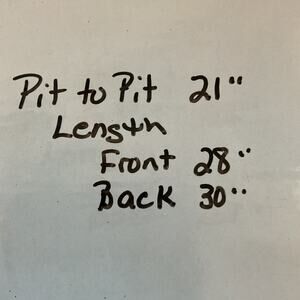 Pit to Pit 21"
Length
Front 28"
Back 30"